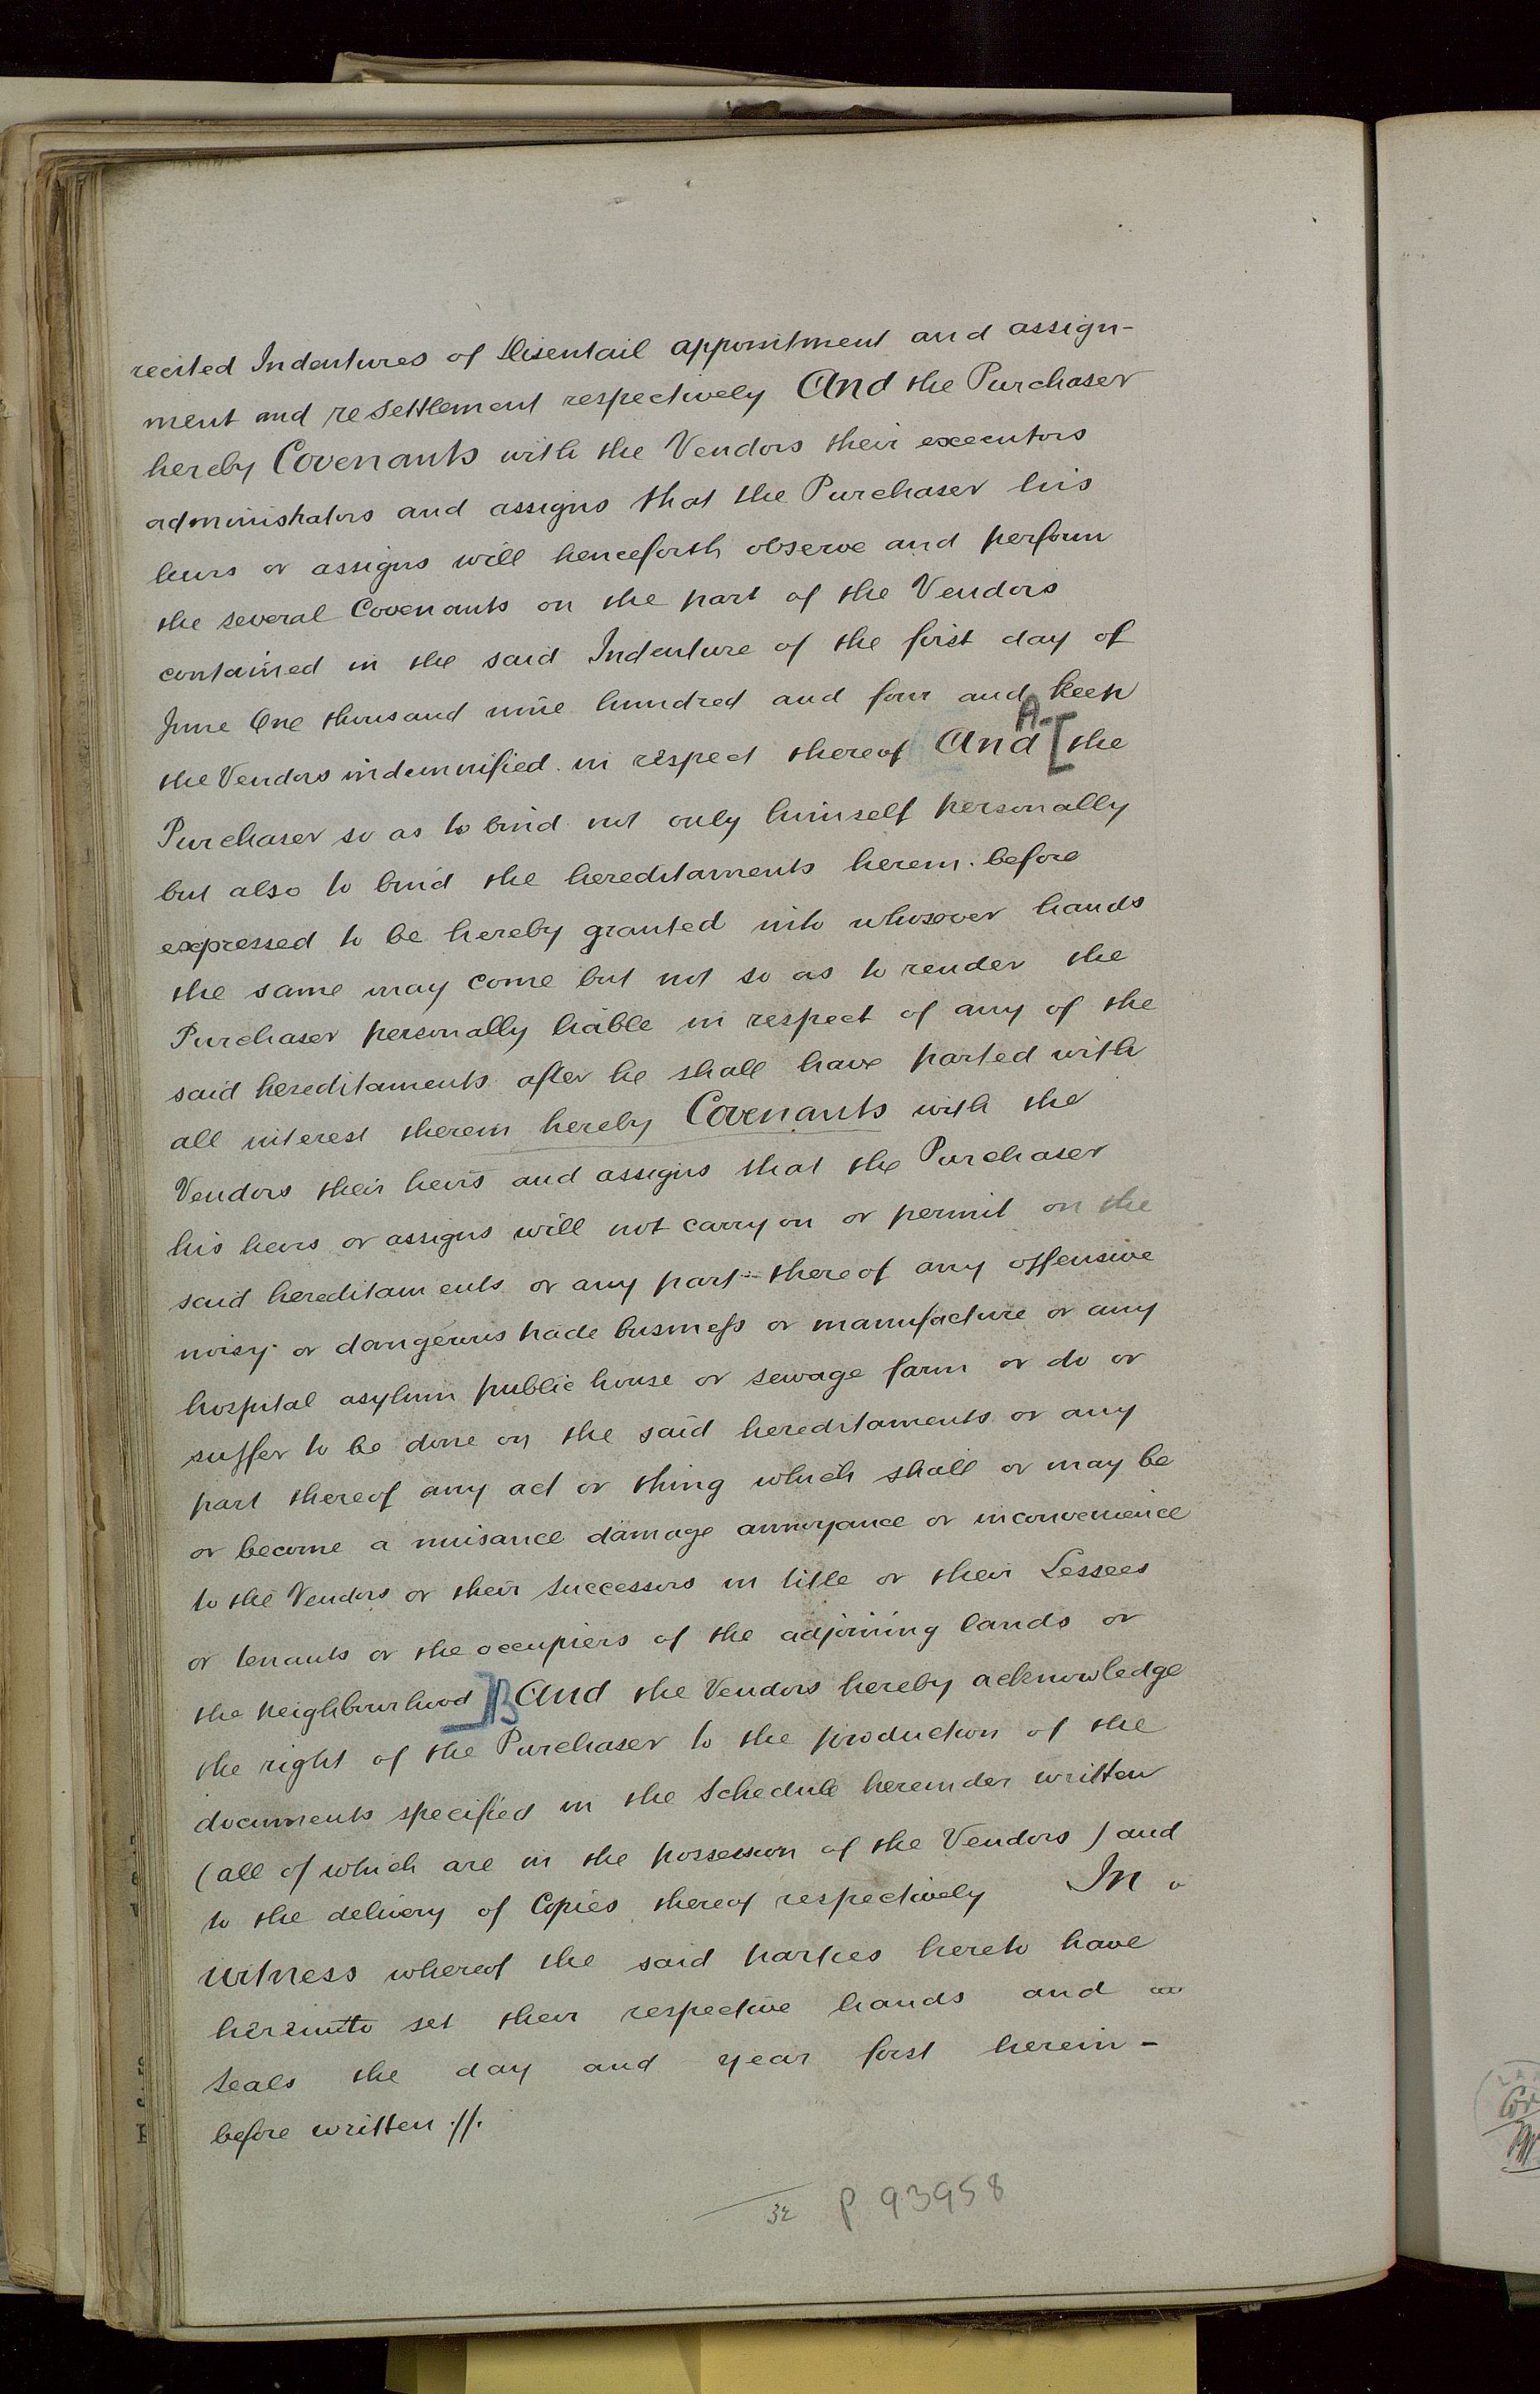 recited Indentures of Disentail appointment and assign-
ment and resettlement respectively And the Purchaser
hereby Covenants with the Vendors their executors
administrators and assigns that the Purchaser his
heirs or assigns will henceforth observe and perform
the several Covenants on the part of the Vendors
contained in the said Indenture of the first day of
June One thousand nine hundred and four and keep
A
the Vendors indemnified in respect thereof And [the
Purchaser so as to bind not only himself personally
but also to bind the hereditaments herein before
expressed to be hereby granted into whosoever hands
the same may come but not so as to render the
Purchaser personally liable in respect of any of the
said hereditaments after he shall have parted with
all interest therein hereby Covenants with the
Vendors their heirs and assigns that the Purchaser
his heirs or assigns will not carry on or permit on the
said hereditaments or any part thereof any offensive
noisy or dangerous trade business or manufacture or any
hospital asylum public house or sewage farm or do or
suffer to be done on the said hereditaments or any
part thereof any act or thing which shall or may be
or become a nuisance damage annoyance or inconvenience
to the Vendors or their successors in title or their Lessees
or tenants or the occupiers of the adjoining lands or
the neighbourhood]B And the Vendors hereby acknowledge
the right of the Purchaser to the production of the
documents specified in the Schedule hereunder written
(all of which are in the possession of the Vendors) and
to the delivery of Copies thereof respectively In
witness whereof the said parties hereto have
hereunto set their respective hands and
seals the day and year first herein-
before written .//.
32 P 93958